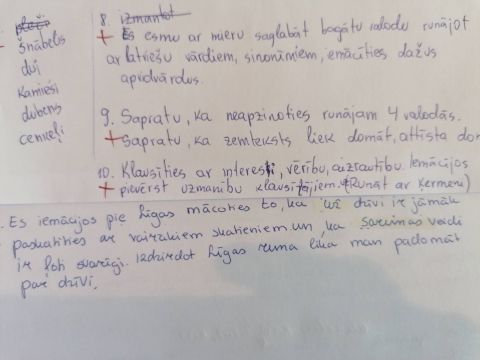 šņabelis
duj
kamiesi
dubens
cenkeļi
8. izmantot
+ Es esmu ar mieru saglabāt bogātu valodu runājot
ar latviešu vārdiem, sinonīmiem, iemācīties dažus
apvidvārdus.
9. Sapratu, ka neapzinoties runājam 4 valodās.
+ Sapratu, ka zemteksts liek domāt, attīsta do
10. Klausīties ar interesi, vērību, aizrautību. Iemācījos
+ pievērst uzmanību klausītājiem. (Runāt ar ķermeni)
Es iemācījos pie Līgas mācoties to, ka uz dzīvi ir jāmāk
paskatīties ar vairākiem skatieniem un, ka sarunas veidi
ir ļoti svarīgi. Izdzirdot Līgas runa lika man padomāt
par dzīvi.